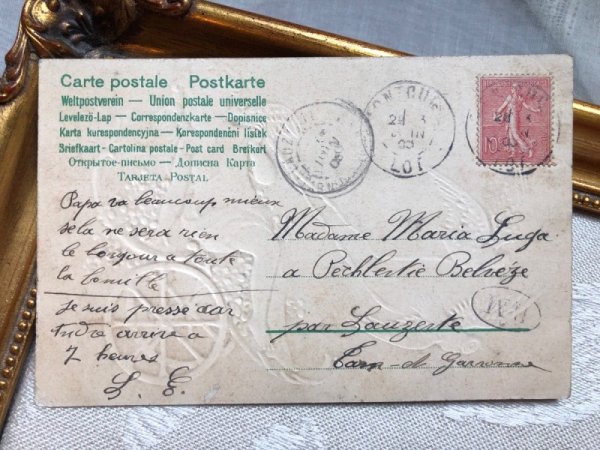 Carte postale Postkarte
Weltpostverein — Union postale universelle
Levelező-Lap — Correspondenzkarte — Dopisnice
Karta korespondencyjna — Korespondenční lístek
Briefkaart - Cartolina postale - Post card Brefkort
Открытое-письмо — Дописна Карта
Tarjeta Postal
Papa va beaucoup mieux
sela ne sera rien
le bonjour a toute
la
Je suis pressé car
arrive a
7 heures
L. E.
10
LOT
Madame Maria Luga
a Belvèze
par Lauzerte
Tarn et Garonne